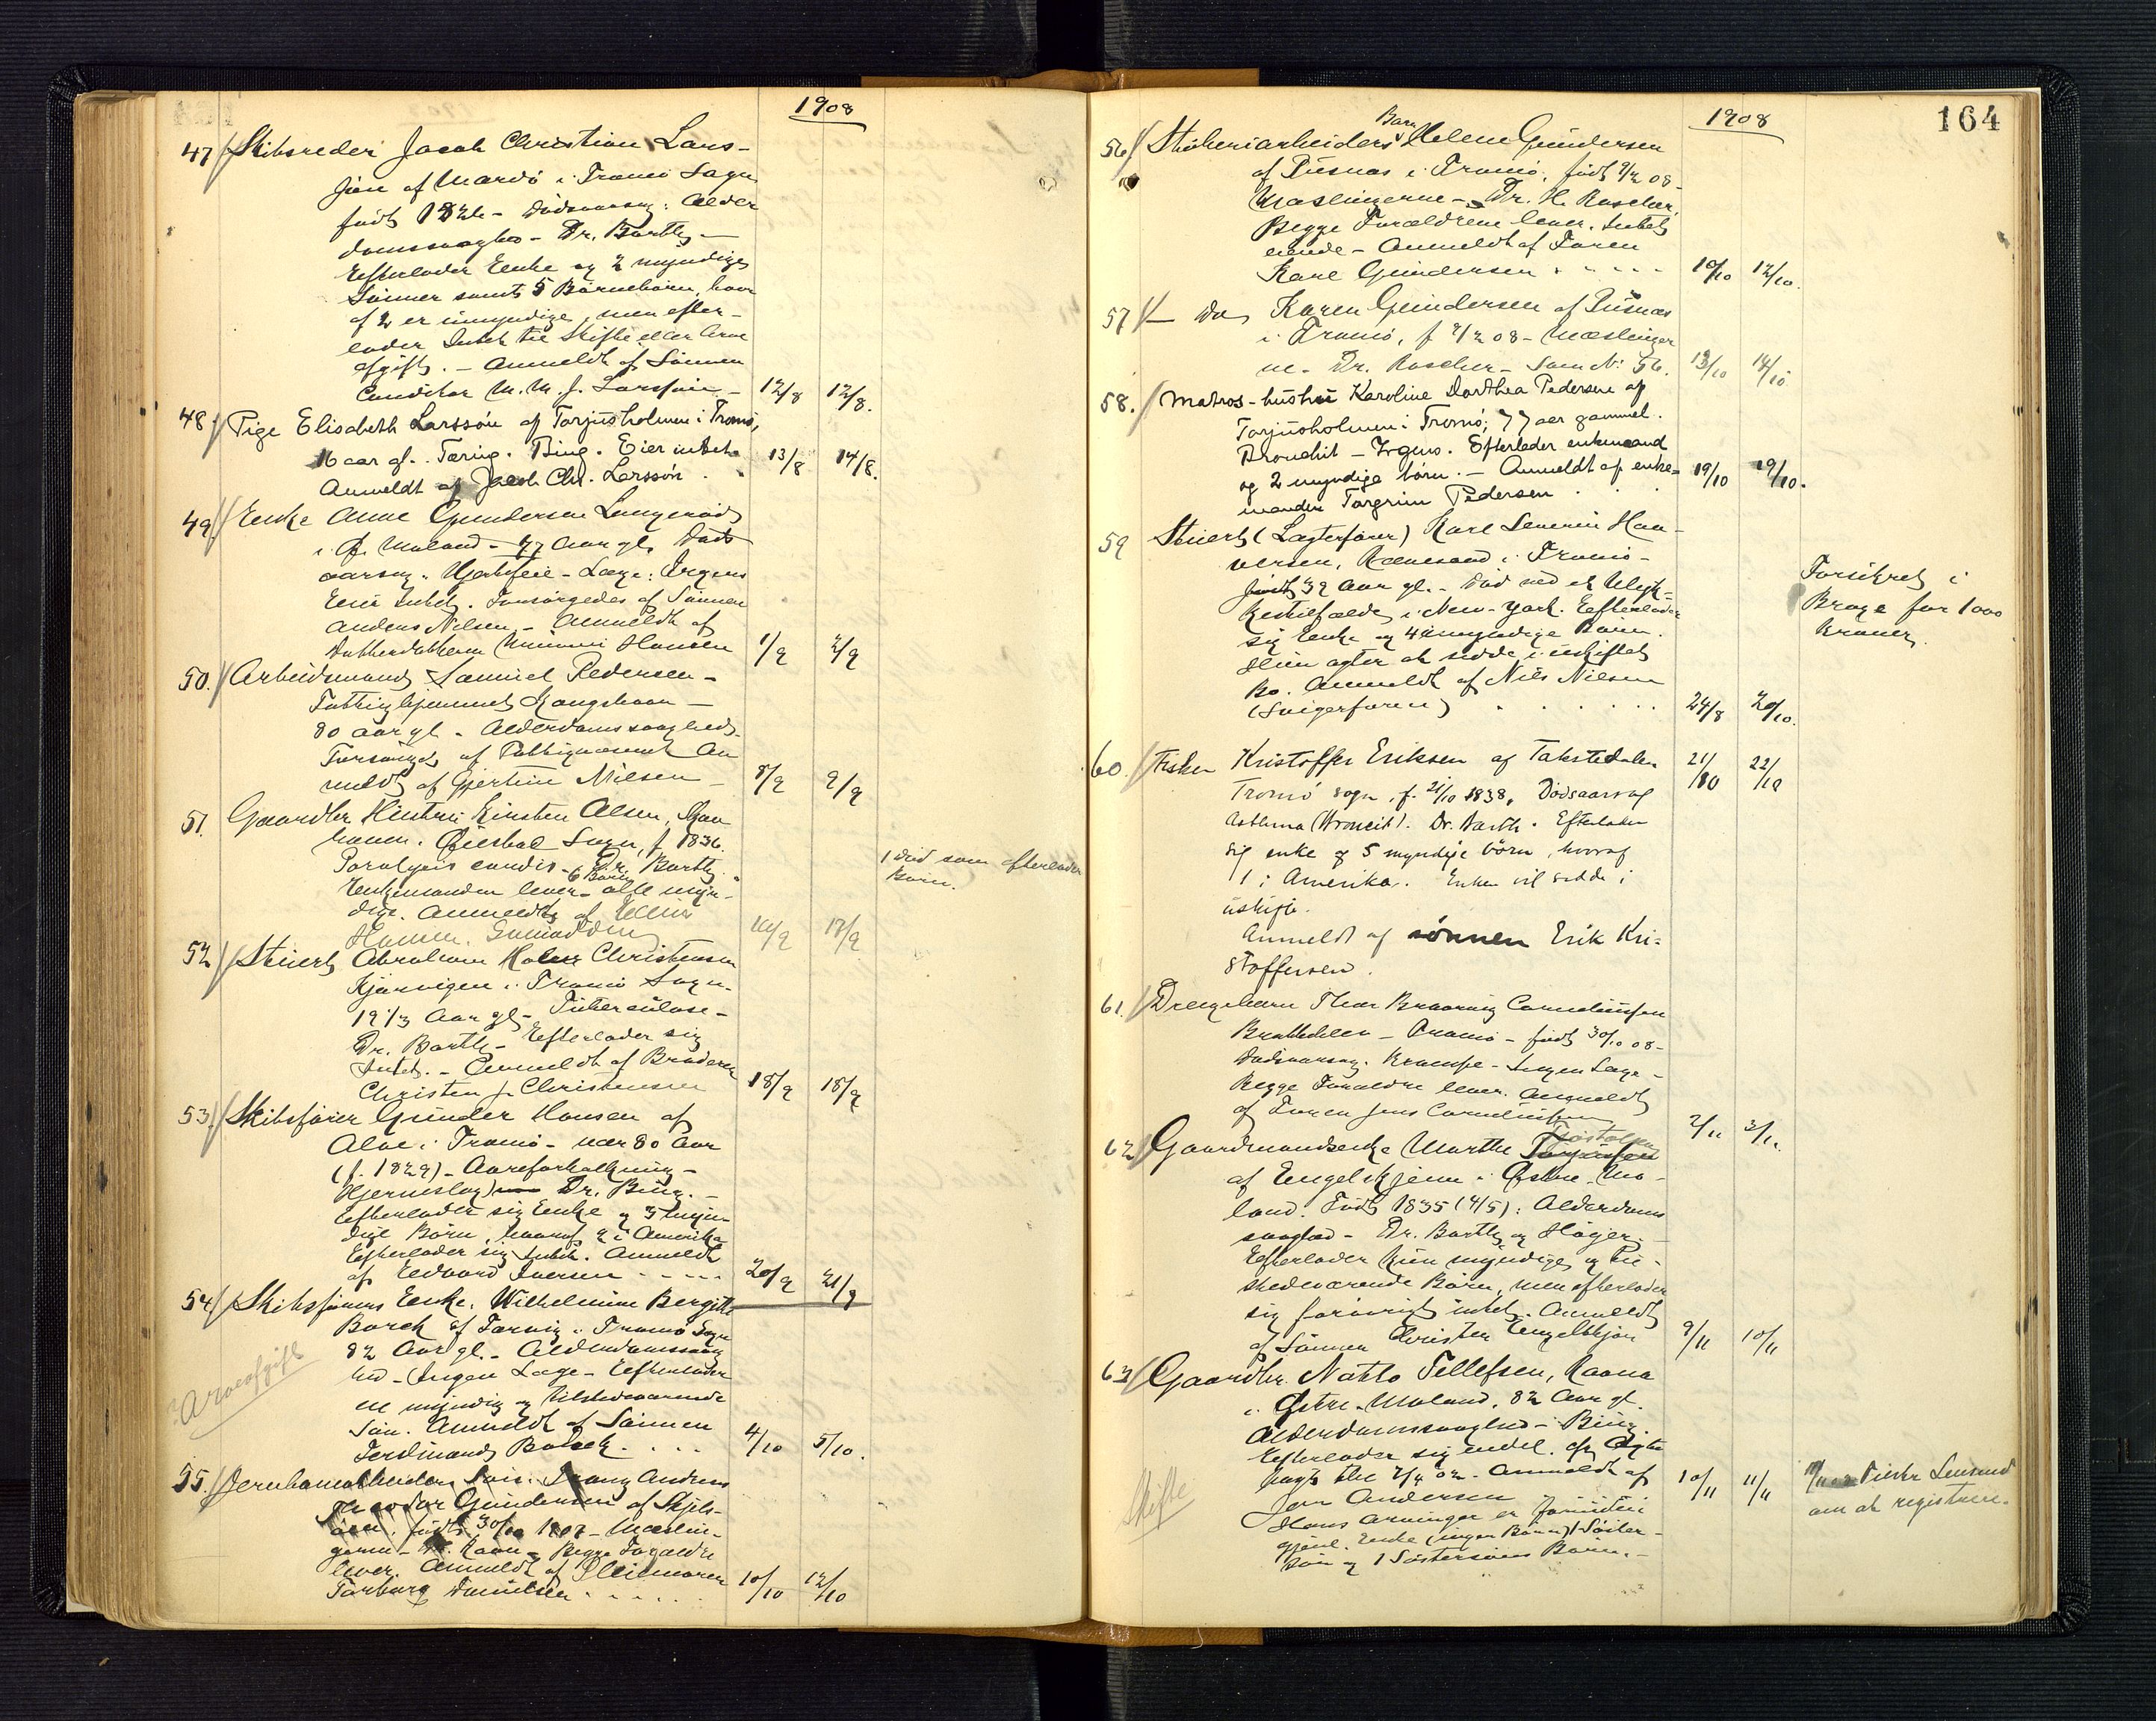 1908
47/ Skibsreder Jacob Christian Lars-
søn af Mardø i Tromø Sogn
født 1824 - Dødsaarsag: Alder
domssvaghed - Dr. Barth -
Efterlader Enke og 2 myndige
Sønner samt 5 Børnebørn, hvor
af 2 er umyndige, men efter-
lader Intet til Skifte eller Arve
afgift. - Anmeldt af Sønnen
Conditor M. M. J. Larssøn - 12/8 12/8.
48/ Pige Elisabeth Larssøn af Torjusholmen i Tromø,
16 aar gl. Tæring. Bing. Eier intet.
Anmeldt af Jacob Chr. Larssøn . 13/8 14/8.
49/ Enke Anne Gundersen Longerød
i Ø. Moland - 77 Aar gl. Døds
aarsag: Hjertefeil - Læge: Irgens
Eier Intet. Forsørgedes af Sønnen
Anders Nilsen - Anmeldt af
Hansen 1/9 2/9
50./ Arbeidsmand Samuel Pedersen -
Fattighjemmet Kongshavn -
80 aar gl - Alderdomssvaghed.
Forsørget af Fattigvæsenet An
meldt af Gjertine Nilsen - 8/9 9/9
51. Gaardbr Hustru Kirsten Olsen,
Øiestad Sogn, f 1836.
Paralysis cordis - Dr. Barth.
Enkemanden lever - 6 Børn alle myn-
dige. Anmeldt af
Hansen. 16/9 17/9
1 død som efterlader
Børn.
52/ Stuert Abraham Holm Christensen
Kjørvigen i Tromø Sogn.
19 1/3 Aar gl - Tuberculose -
Dr. Barth - Efterlader sig
Intet. - Anmeldt af Broderen
Christen J. Christensen 18/9 18/9
53/ Skibsfører Gunder Hansen af
Alve i Tromø - nær 80 Aar
(f. 1829) - Aareforkalkning -
Hjerneslag) Dr. Bing. -
Efterlader sig Enke og 5 myn-
dige Børn, hvoraf 2 i Amerika
Efterlader sig Intet. Anmeldt
af Edvard Iversen - - - - 20/9 21/9
54/ Skibsførers Enke, Wilhelmine Bergitte
Borch af Færvig i Tromø Sogn
82 Aar gl. - Alderdomssvag
hed - (Ingen Læge - Efterlader
en myndig og tilstedeværende
Søn. Anmeldt af Sønnen
Ferdinand Borch. . . . 4/10 5/10.
Arveafgift
55./ Jernbanearbeiders Søn: Franz Anders
Theodor Gundersen af Skjels-
øen. født 1907 - Mæslin-
gerne - Dr. Raon - Begge Forældre
lever. Anmeldt af Pleiemoren
Torborg Danielsen . . . . . 10/10 12/10
164
1908
56/ Skoheriarbeiders Barn Helene Gundersen
af Pusnes i Tromø. født 9/2 08 -
Mæslingerne - Dr. H. Roscher.
Begge Forældrene lever. Intet
eiende - Anmeldt af Faren
Karl Gundersen . . . . 10/10 12/10.
57/ - Do Karen Gundersen af Pusnes
i Tromø, f 9/2 08 - Mæslinger
ne. Dr. Roscher - Som N: 56. 13/10 14/10
58./ Matros-hustru Karoline Dorthea Pedersen af
Torjusholmen i Tromø; 77 aar gammel.
Bronchit - Irgens. Efterlader enkemand
og 2 myndige børn. - Anmeldt af enke-
manden Torgrim Pedersen . . 19/10 19/10.
59 Stuert (Lægterfører) Karl Severin Han-
sersen, Rævesand i Tromø -
født 39 Aar gl. - Død ved et Ulyk-
kestilfælde i New-York. Efterlader
sig Enke og 4 umyndige Børn.
Hun agter at sidde i uskiftet
Bo. Anmeldt af Nils Nilsen
(Svigerfaren) . . . . . . 24/8 20/10.
Forsikret i
Brage for 1000
Kroner.
60./ Fisker Kristoffer Eriksen af Takstedalen 21/10 22/10
Tromø sogn, f. 21/10 1838, Dødsaarsag
Asthma (Broncit). Dr. Barth. Efterlader
sig enke og 5 myndige børn, hvoraf
1 i Amerika. Enken vil sidde i
uskifte.
Anmeldt af sønnen Erik Kri-
stoffersen.
61./ Drengebarn Thor Braaring Corneliussen
Brattekleiv - Tromø - født 30/10 08 -
Dødsaarsag. Krampe - Ingen Læge -
Begge Forældre lever. Anmeldt
af Faren Jens Corneliussen 2/11 3/11.
62/ Gaardmandsenke Marthe
af Engelskjøn i Østre Mo-
land. Født 1835 (4/5): Alderdoms
svaghed - Dr. Barth og Høyer.
Efterlader kun myndige og til-
stedeværende Børn, men efterlader
sig forøvrigt intet. Anmeldt
af Sønnen Christen Engelskjøn 9/11 10/11
63/ Gaardbr. Natto Tellefsen, Raana
i Østre-Moland, 82 Aar gl.
Alderdomssvaghed - Bing
Efterlader sig endel. af
pagt dat 7/4 02 - Anmeldt af
Jon Andersen 10/11 11/11
Hans Arvinger er foruden
gjenl. Enke (ingen Børn) 1 Søster-
søn og 1 Søstersøns Børn. -
Skifte
om at registrere.